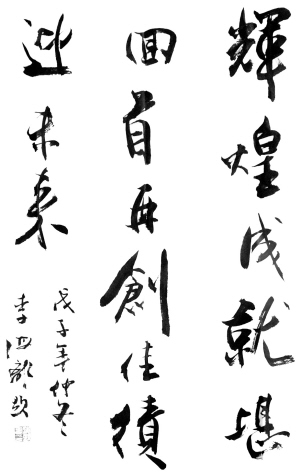 輝煌成就堪
回首再創佳績
迎未来
戊子年仲冬
李